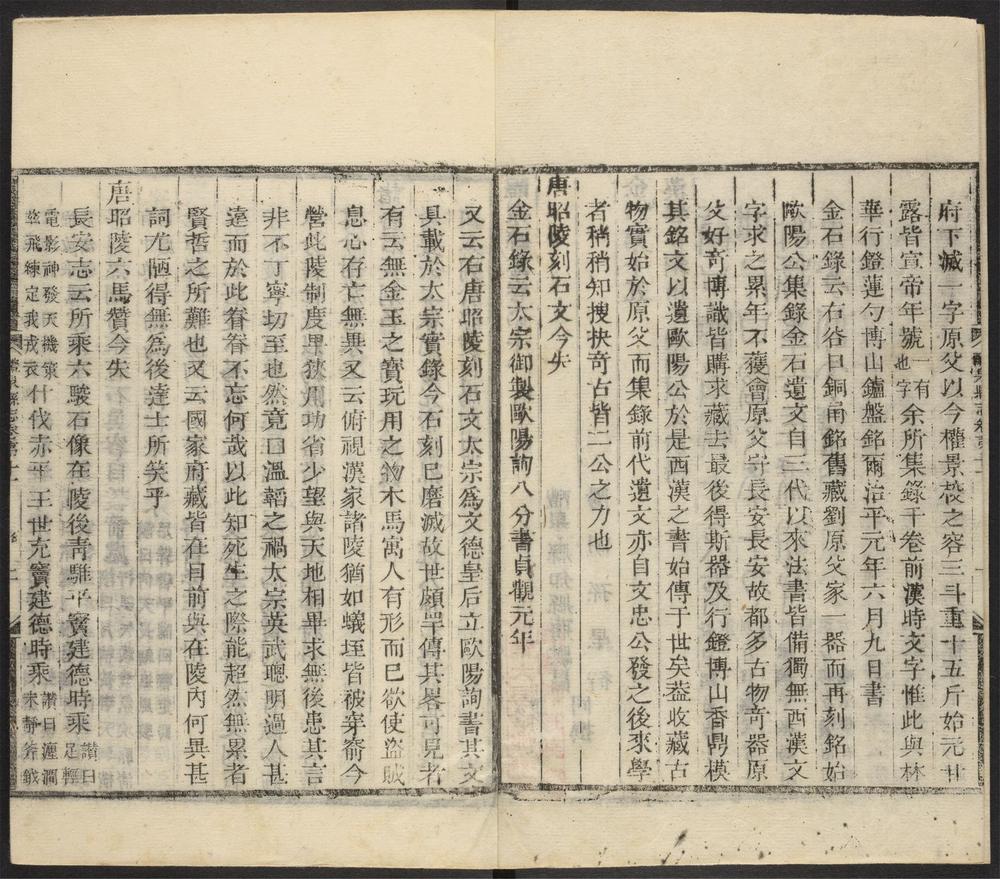 府下減一字原父以今權景校之容三斗重十五斤始元甘
露皆宣帝年號一有也字余所集錄千卷前漢時文字惟此與林
華行鐙蓮勺博山鑪盤銘爾治平元年六月九日書
金石錄云右谷口銅甬銘舊藏劉原父家一器而再刻銘始
歐陽公集錄金石遺文自三代以來法書皆備獨無西漢文
字求之累年不獲會原父守長安長安故都多古物奇器原
父好奇博識皆購求藏去最後得斯器及行鐙博山香鼎模
其銘文以遺歐陽公於是西漢之書始傳于世矣葢收藏古
物實始於原父而集錄前代遺文亦自文忠公發之後來學
者稍稍知搜抉奇古皆二公之力也
唐昭陵刻石文今失
金石錄云太宗御製歐陽詢八分書貞觀元年
又云右唐昭陵刻石文太宗為文德皇后立歐陽詢書其文
具載於太宗實錄今石刻已磨滅故世頗罕傳其畧可見者
有云無金玉之寶玩用之物木馬寓人有形而已欲使盜賊
息心存亡無異又云俯視漢家諸陵猶如蟻垤皆被穿窬今
營此陵制度卑狹用功省少望與天地相畢求無後患其言
非不丁寧切至也然竟曰溫韜之禍太宗英武聰明過人甚
遠而於此眷眷不忘何哉以此知死生之際能超然無累者
賢哲之所難也又云國家府藏皆在目前與在陵內何異甚
詞尤陋得無為後達士所笑乎
唐昭陵六馬贊今失
長安志云所乘六駿石像在陵後青騅平竇建德時乘讚曰足輕
電影神發天機策茲飛練定我戎衣什伐赤平王世充竇建德時乘讚曰瀍澗未靜斧鉞